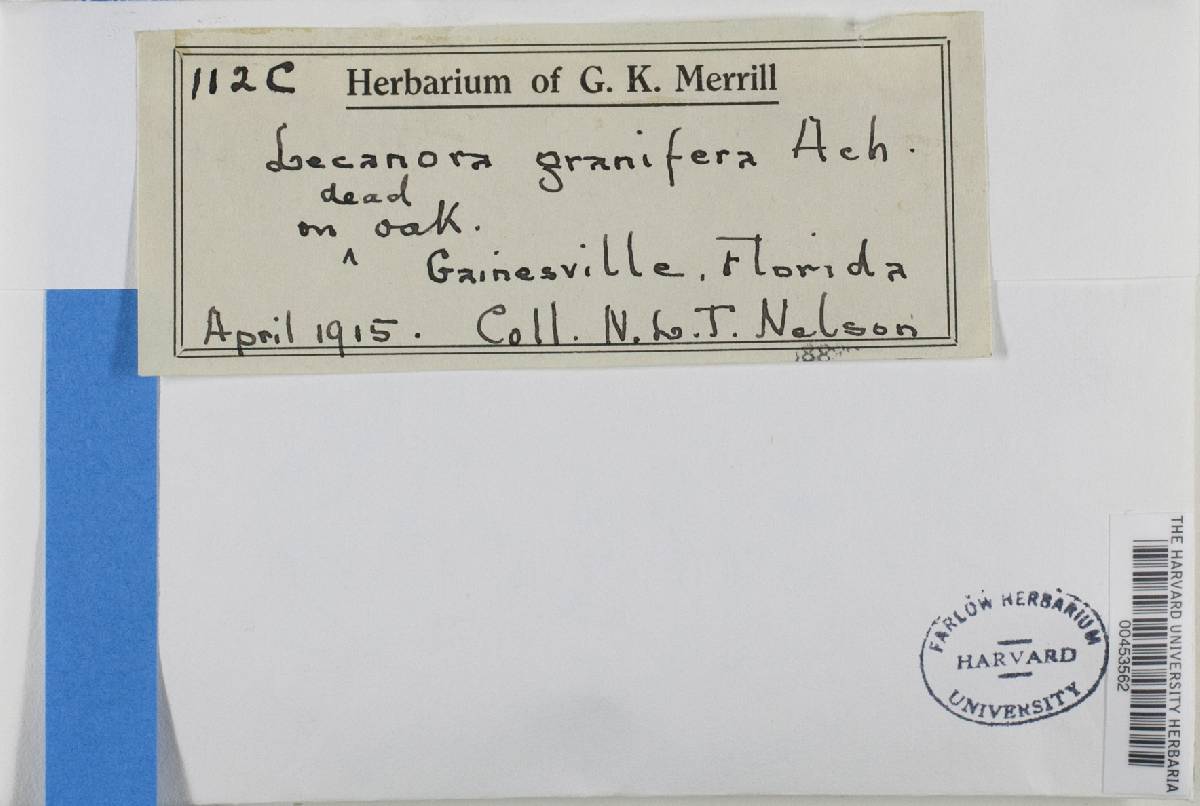 112C Herbarium of G. K. Merrill
Lecanora granifera Ach.
dead
on ^ oak.
Gainesville, Florida
April 1915. Coll. N. L. T. Nelson
FARLOW HERBARIUM
HARVARD
UNIVERSITY
THE HARVARD UNIVERSITY HERBARIA
00453562